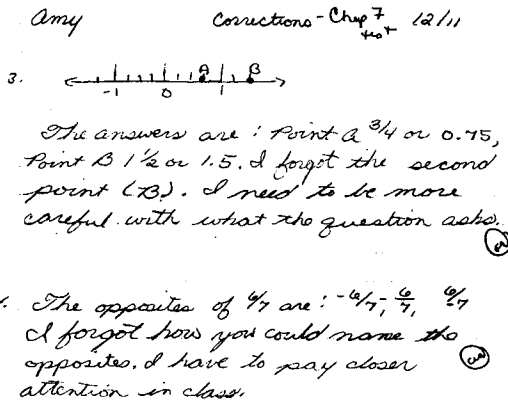 Amy Corrections - Chap 7 test 12/11
3. A B
-1 0 1
The answers are : Point A 3/4 or 0.75,
Point B 1 1/2 or 1.5. I forgot the second
point (B). I need to be more
careful with what the question asks.
The opposites of 6/7 are : -6/7, -6/7, 6/-7
I forgot how you could name the
opposites. I have to pay closer
attention in class.